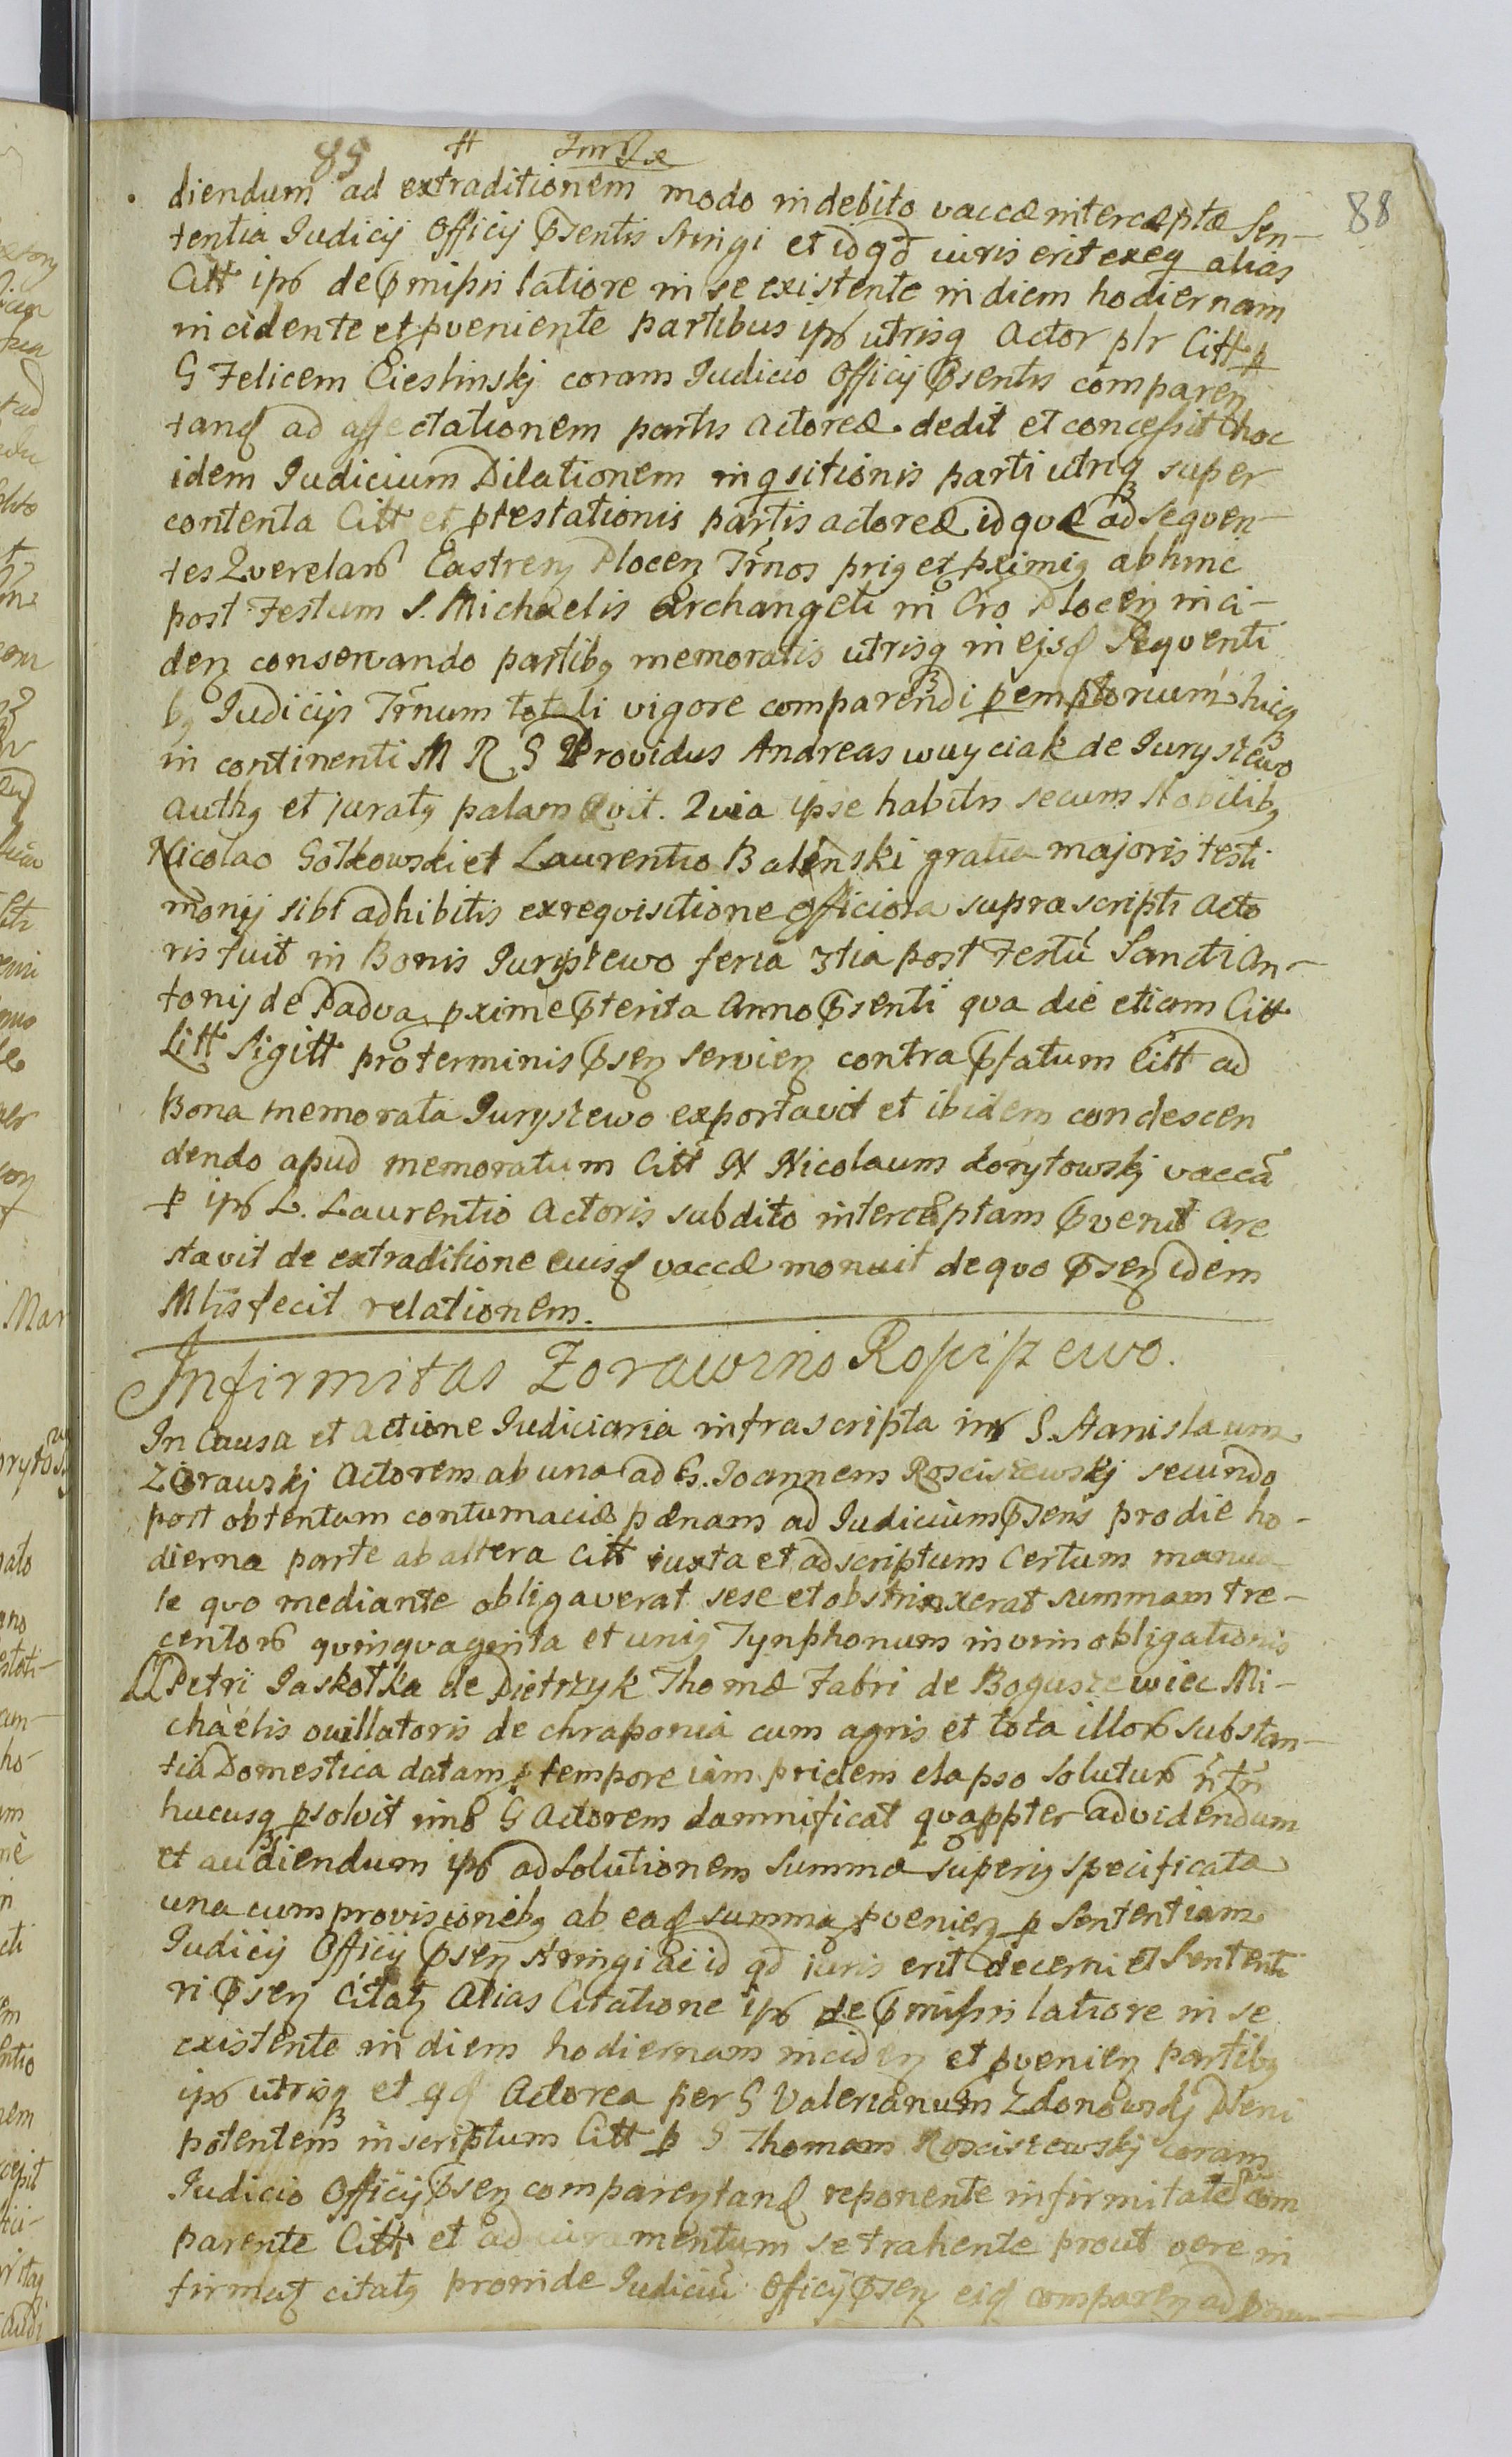 85
88
diendum ad extraditionem modo indebito vaccæ interceptæ Sen-
tentia Iudicij Officij psentis stringi et id qd iuris erit exeq alias
Citt ipo de pmissi latiore in se existente in diem hodiernam
incidente et pveniente partibus ipo utrisq Actor plr Citt p
G Felicem Cieslinskj coram Iudicio Officij psentis comparen
tanq ad affectationem partis actoreæ dedit et concessit hoc
idem Iudicium Dilationem inqsitionis parti utriq super
contenta Citt et ptestationis partis actoreæ idque ad sequen-
tes Querelaro Castren Plocen Trnos prig et pximig abhinc
post Festum S. Michaelis Archangeli in Cro Plocen inci-
den conservando partibg memoratis utrisq in ejsd sequenti
bg Iudicijs Trnum totali vigore comparendi pemptorium huicq
in continenti M R G Providus Andreas wuyciak de Juryszewo
authg et juratg palam Qvit. Quia ipse habitis secum Nobilibg
Nicolao Gotkowski et Laurentio Balenski gratia majoris testi
monij sibi adhibitis ex requisitione officiosa supra scripti acto
ris fuit in Bonis Juryszewo feria 3tia post Festu Sancti An-
tonij de Padva pxime pterita Anno psenti qva die etiam Citt
Litt Sigitt pro terminis psen servien contra pfatum Citt ad
Bona memorata Juryszewo exportavit et ibidem condescen
dendo apud memoratum Citt N Nicolaum dorytowskj vaccã
p ipo L. Laurentio Actoris subdito interceptam pvenit are
stavit de extraditione euisq vaccæ monuit de quo psen idem
Mlis fecit relationem.
Infirmitas Zorawino Ropiszewo.
In Causa et actione Iudiciaria infrascripta inr G. Stanislaum
Ziorauskj Actorem ab una ad G. Joannem Rosciszewskj secundo
post obtentam contumaciæ pænam ad Iudicium psens pro die ho-
dierna parte ab altera Citt iuxta et ad scriptum Certum manua
le quo mediante obligaverat sese et obstrinxerat summam tre-
centoro qvinqvaginta et unig Tynphonum in vim obligationis
LL Petri Jaskotka de Pietrzyk Thomæ Fabri de Boguszewiec Mi-
chaelis ovillatoris de chraponia cum agris et tota illoro substan-
tia Domestica datam p tempore iam pridem elapso soluturo ñ tñ
hucusq psolvit imo G Actorem damnificat qvappter ad videndum
et audiendum ipo ad solutionem summæ superig specificata
una cum provisionibg ab eadq summa pvenien p sententiam
Iudicij Officij psen stringi ac id qd iuris erit decerni et sententi
ri psen Citatg Alias Citatione ipo de pmissis latiore in se
existente in diem hodiernam inciden et pvenien partibg
ipo utrisq et qd Actorea per G Valerianum Zdonowskj Pleni
potentem inscriptum Citt p G Thomam Rosciszewskj coram
Iudicio Officij psen comparen tanq reponente infirmitate com
parente Citt et ad iuramentum se trahente prout vere in
firmatg citatg proinde Iudiciu Officij psen eidq comparen ad